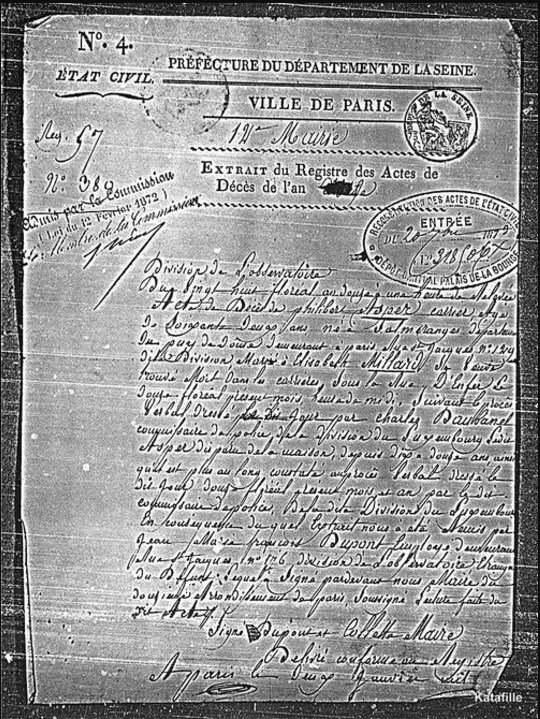 Nº. 4.
ÉTAT CIVIL.
PRÉFECTURE DU DÉPARTEMENT DE LA SEINE.
VILLE DE PARIS.
12e Mairie
Reg. 57
Nº. 38
EXTRAIT du Registre des Actes de
Décès de l'an
Admis par la Commission
(Loi du 12 Février 1872)
Membre de la Commission
RECONSTITUTION DES ACTES DE L'ÉTAT CIVIL
ENTRÉE
DU 20
PALAIS DE LA BOURSE
DE LA SEINE
Division de l'observatoire
Du Vingt huit floreal an douze a une heure de
Acte de Décès de philibert Asper carrier age
De Soixante Deux ans né a département
Du puy de Dome demeurant a paris rue st Jacques nº
Division Marié a Elisabeth Millard
trouvé Mort dans les carrières Sous la Rue D'Enfer Le
douze floreal présent mois heure de midi, Suivant le procès
Verbal dressé jour par Charles Daubanel
commissaire de police de la Division du Luxembourg
Asper disparu de sa maison, depuis onze a douze ans
qu'il est plus au long constaté au procès Verbal dressé le
dit jour douze floreal présent mois et an par le dit
commissaire de police, De la dite Division du Luxembourg
En conséquence du quel Extrait nous a été Remis par
Jean francois Dupont Employé demeurant
Rue St Jacques, nº 176 division de l'observatoire
du Defunt, lequel a Signé pardevant nous Maire du
douzieme arrondissement de paris, Soussigné Lecture faite du
Dit Acte
Signé Dupont et Collette Maire
Delivré conforme au Registre
A paris le Deux Janvier
Katafille